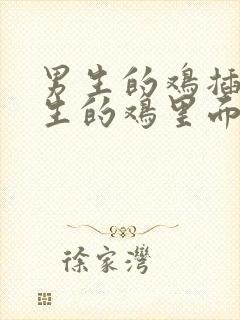 男生的鸡插
生的鸡里面
徐家湾